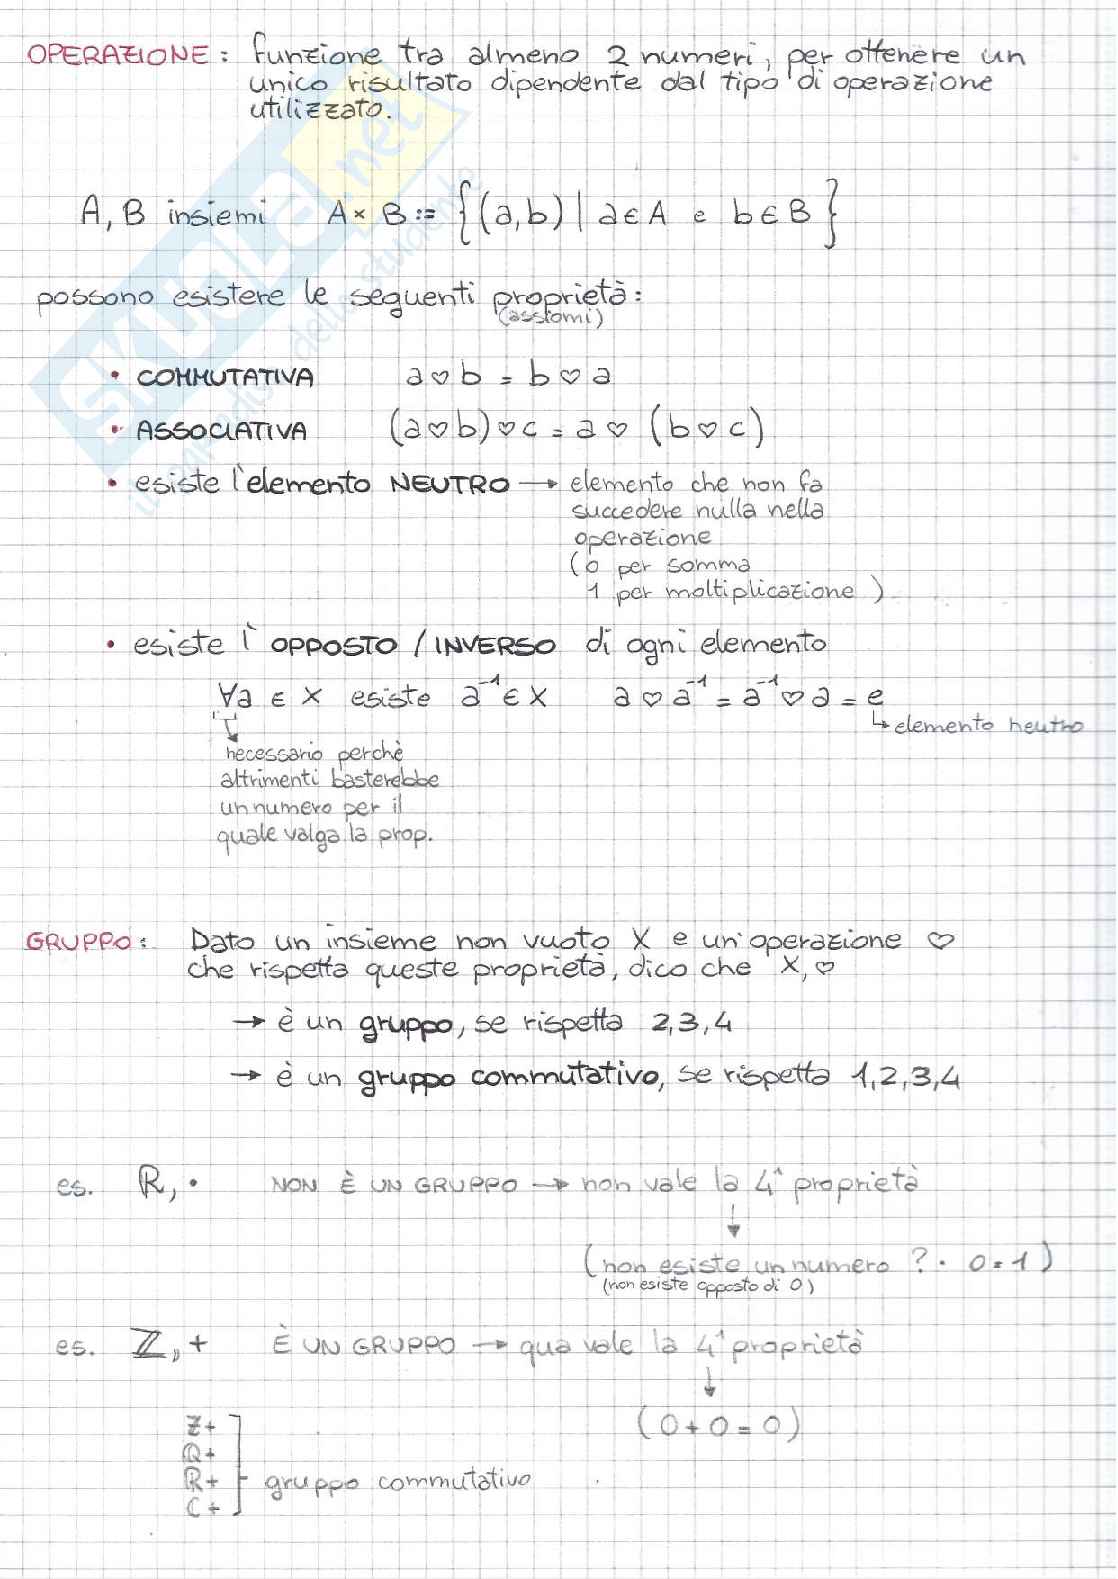 OPERAZIONE: funzione tra almeno 2 numeri, per ottenere un
unico risultato dipendente dal tipo di operazione
utilizzato.
A, B insiemi A × B := {(a,b) | a ∈ A e b ∈ B}
possono esistere le seguenti proprietà:
(assiomi)
• COMMUTATIVA a ♡ b = b ♡ a
• ASSOCIATIVA (a ♡ b) ♡ c = a ♡ (b ♡ c)
• esiste l'elemento NEUTRO → elemento che non fa
succedere nulla nella
operazione
(0 per somma
1 per moltiplicazione)
• esiste l'OPPOSTO / INVERSO di ogni elemento
∀a ∈ X esiste a⁻¹ ∈ X a ♡ a⁻¹ = a⁻¹ ♡ a = e
↳ elemento neutro
necessario perchè
altrimenti basterebbe
un numero per il
quale valga la prop.
GRUPPO: Dato un insieme non vuoto X e un'operazione ♡
che rispetta queste proprietà, dico che X, ♡
→ è un gruppo, se rispetta 2,3,4
→ è un gruppo commutativo, se rispetta 1,2,3,4
es. ℝ, • NON È UN GRUPPO → non vale la 4ª proprietà
↓
(non esiste un numero ? · 0 = 1)
(non esiste opposto di 0)
es. ℤ, + È UN GRUPPO → qua vale la 4ª proprietà
↓
(0 + 0 = 0)
ℤ +
ℚ +
ℝ + gruppo commutativo
ℂ +
SKUOLA.net